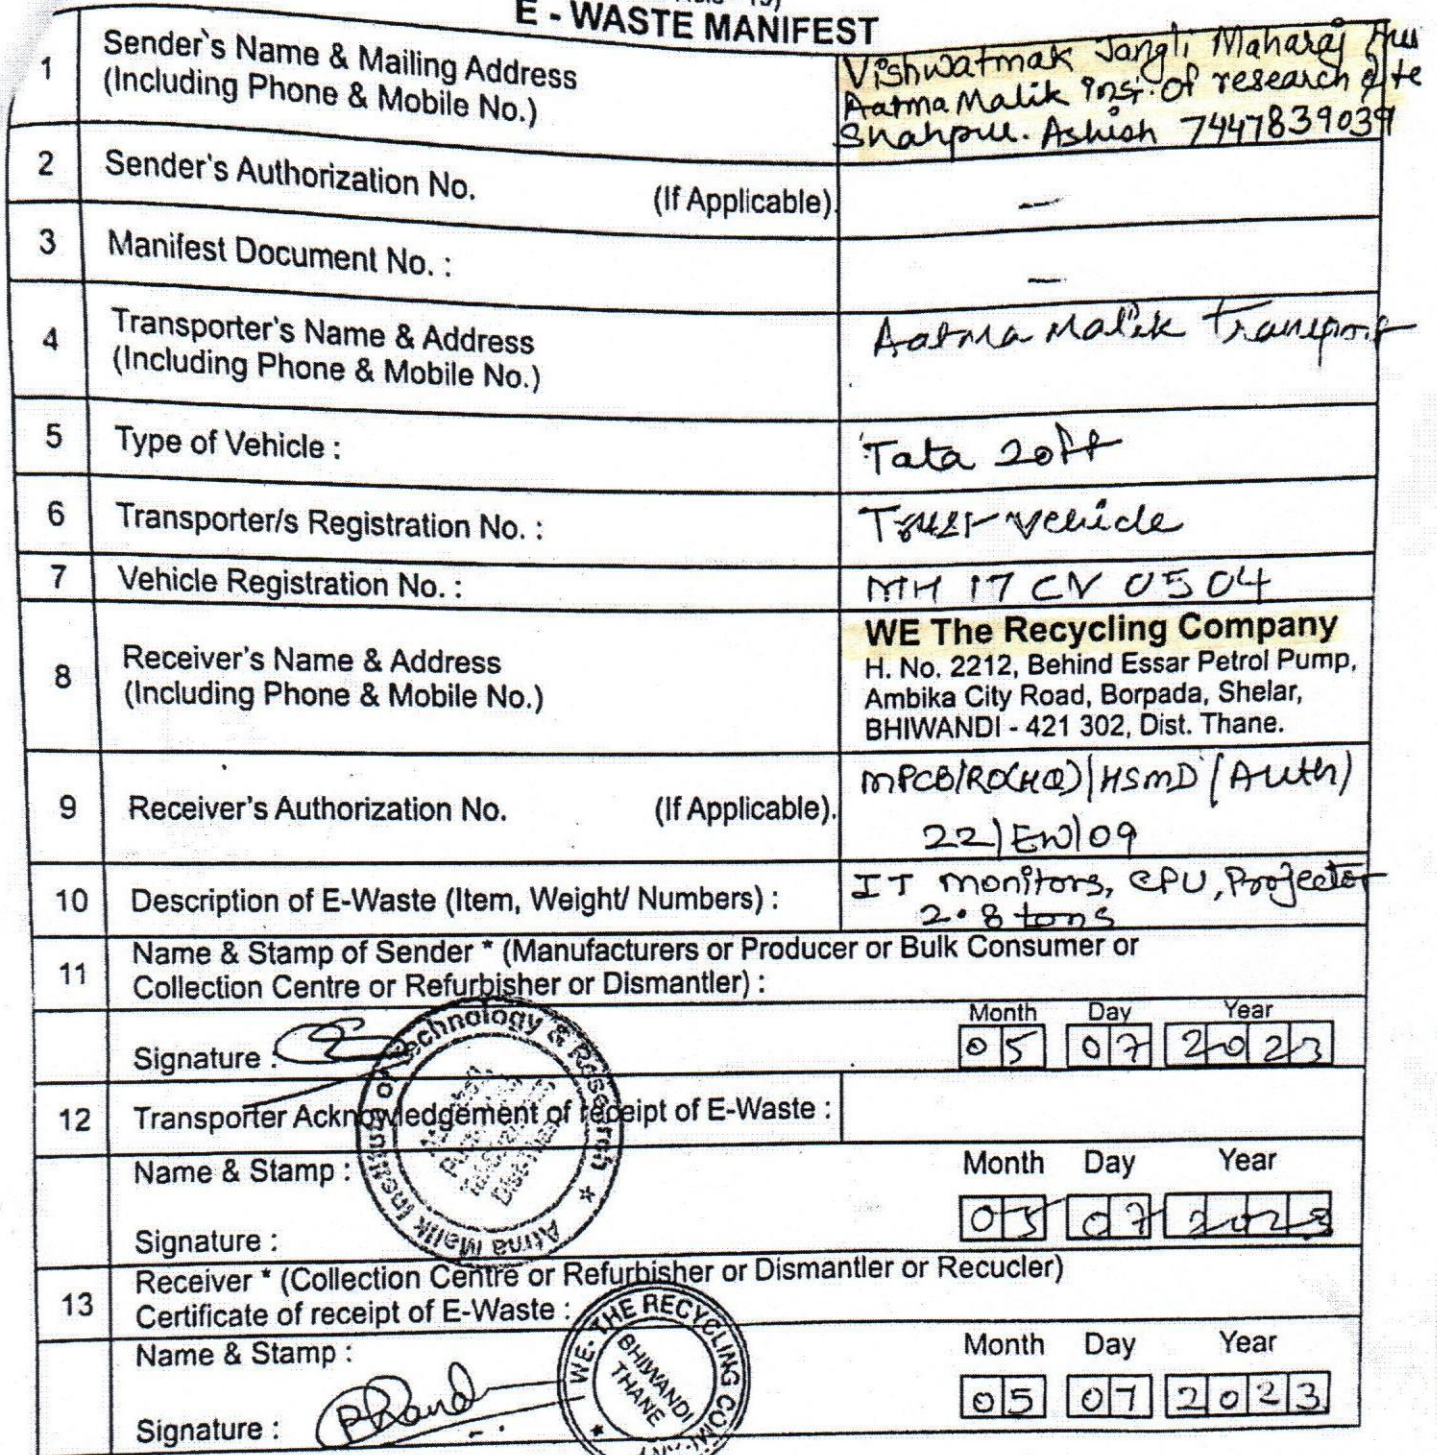 E - WASTE MANIFEST
1 Sender's Name & Mailing Address
(Including Phone & Mobile No.)
Vishwatmak Jangli Maharaj
Aatma Malik Inst. of research &
Shahpur. Ashish 7447839039
2 Sender's Authorization No. (If Applicable).
—
3 Manifest Document No. :
—
4 Transporter's Name & Address
(Including Phone & Mobile No.)
Aatma Malik Transport
5 Type of Vehicle :
Tata 20ft
6 Transporter/s Registration No. :
Trust vehicle
7 Vehicle Registration No. :
MH 17 CV 0504
8 Receiver's Name & Address
(Including Phone & Mobile No.)
WE The Recycling Company
H. No. 2212, Behind Essar Petrol Pump,
Ambika City Road, Borpada, Shelar,
BHIWANDI - 421 302, Dist. Thane.
9 Receiver's Authorization No. (If Applicable).
MPCB/RO(HQ)/HSMD/(Auth)
22/EW/09
10 Description of E-Waste (Item, Weight/ Numbers) :
IT monitors, CPU, Projector
2.8 tons
11 Name & Stamp of Sender * (Manufacturers or Producer or Bulk Consumer or
Collection Centre or Refurbisher or Dismantler) :
Month Day Year
Signature :
05 07 2023
Atma Malik Institute of Technology & Research
12 Transporter Acknowledgement of receipt of E-Waste :
Name & Stamp :
Month Day Year
05 07 2023
Signature :
13 Receiver * (Collection Centre or Refurbisher or Dismantler or Recucler)
Certificate of receipt of E-Waste :
Name & Stamp :
Month Day Year
05 07 2023
Signature :
WE- THE RECYCLING COMPANY
BHIWANDI
THANE